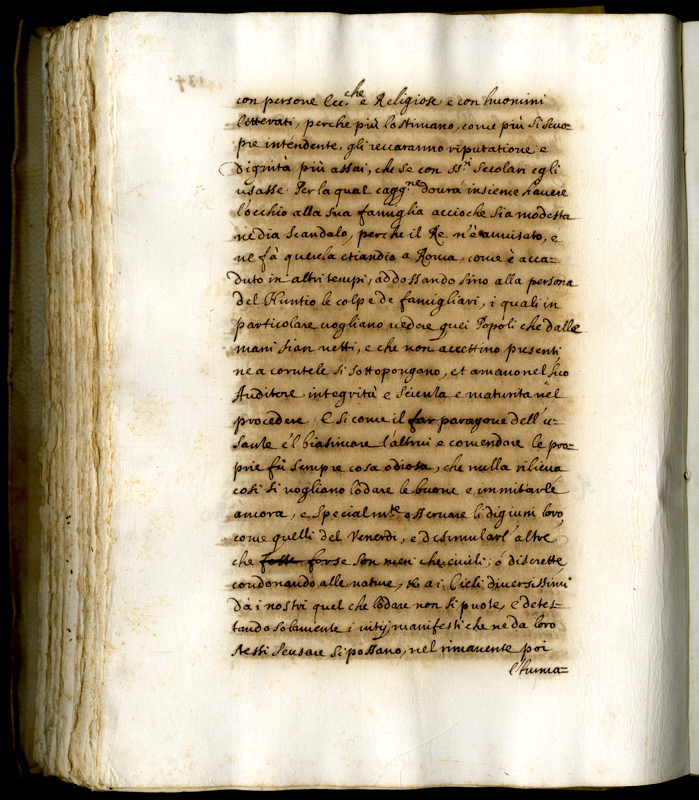 con persone Ecc.che e Religiose e con huomini
litterati, perche più lo stimano, come più si scuo=
pre intendente, gli reccaranno riputatione e
dignità più assai, che se con SS.ri Secolari egli
usasse. Per la qual cagg.ne dourà insieme hauere
l'occhio alla sua famiglia accioche sia modesta
ne dia scandalo, perche il Re n'è auuisato, e
ne fà querela etiandio a Roma, come è acca=
duto in altri tempi, addossando sino alla persona
del Nuntio le colpe de famigliari, i quali in
particolare uogliano uedere quei Popoli che dalle
mani sian netti, e che non accettino presenti,
ne a corutele si sottopongano, et amano nel suo
Auditore integrità e Scienza e maturità nel
procedere. E si come il far paragone dell'u=
sante e'l biasimare l'altrui e comendare le pro=
prie fù sempre cosa odiosa, che nulla rilieua
così si uogliano lodare le buone e immitarle
ancora, e special m.te osseruare li digiuni loro,
come quelli del Venerdi, e dissimular l'altre
che forse son men che ciuili, ò discrette,
condonando alle nature, & a i Cieli diuersissimi
da i nostri quel che lodare non si puole, e detes=
tando solamente i uitij manifesti che ne da loro
stessi scusare si possano, nel rimanente poi
l'huma=